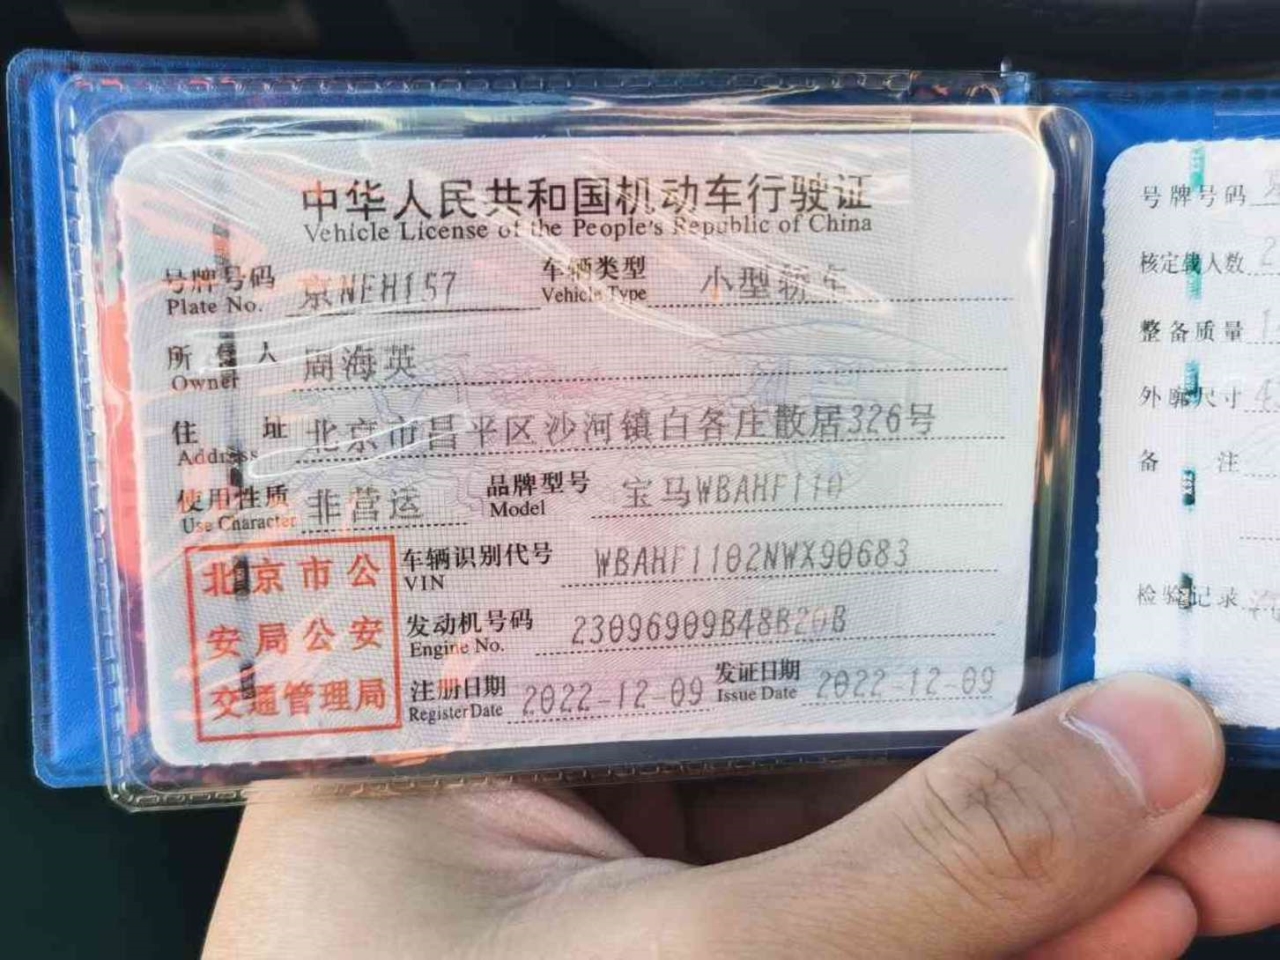 中华人民共和国机动车行驶证
Vehicle License of the People's Republic of China
号牌号码 京NEH157 车辆类型 小型轿车
Plate No. Vehicle Type
所有人 周海英
Owner
住址 北京市昌平区沙河镇白各庄散居326号
Address
使用性质 非营运 品牌型号 宝马WBAHF110
Use Character Model
北京市公
安局公安
交通管理局
车辆识别代号 WBAHF1102NWX90683
VIN
发动机号码 23096909B48B20B
Engine No.
注册日期 2022-12-09 发证日期 2022-12-09
Register Date Issue Date
号牌号码
核定载人数
整备质量
外廓尺寸
备注
检验记录